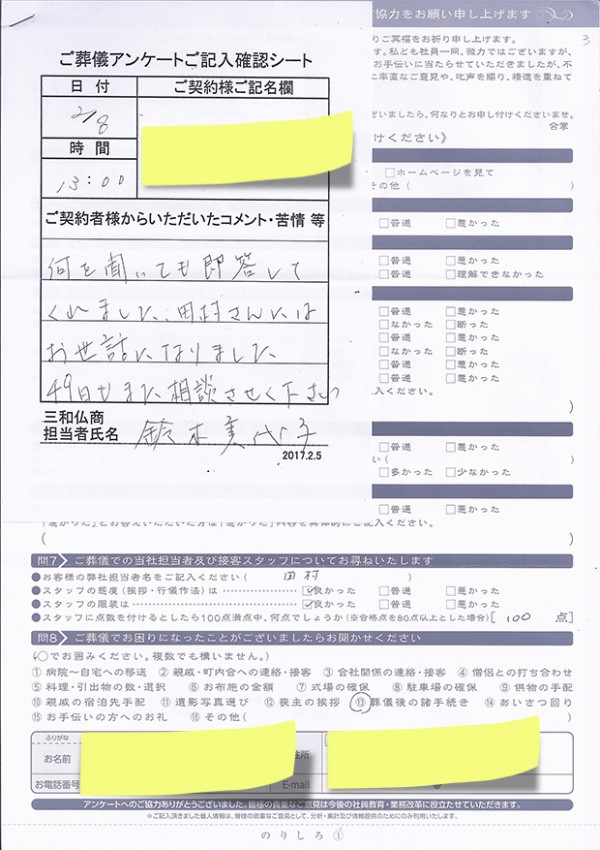 協力をお願い申し上げます
3
りご冥福をお祈り申し上げます。
す。私ども社員一同、微力ではございますが、
お手伝いに当たらせていただきましたが、不
に率直なご意見や、叱声を賜り、精進を重ねて
ざいましたら、何なりとお申し付けくださいませ。
合掌
けください》
□ホームページを見て
その他( )
□普通 □悪かった
□普通 □悪かった
□普通 □理解できなかった
□普通 □悪かった
□なかった □断った
□普通 □悪かった
□なかった □断った
□普通 □悪かった
□普通 □悪かった
入ください。
)
□普通 □悪かった
い( )
□多かった □少なかった
□普通 □悪かった
ご葬儀アンケートご記入確認シート
日付 ご契約様ご記名欄
2/8
時間
13:00
ご契約者様からいただいたコメント・苦情 等
何を聞いても即答して
くれました。田村さんには
お世話になりました
49日もまた相談させて下さい
三和仏商
担当者氏名 鈴木美代子
2017.2.5
「悪かった」とお答えいただいた方は「悪かった」内容を具体的にご記入ください。
( )
問7 ご葬儀での当社担当者及び接客スタッフについてお尋ねいたします
●お客様の弊社担当者名をご記入ください( 田村 )
●スタッフの態度(挨拶・行儀作法)は ☑良かった □普通 □悪かった
●スタッフの服装は ☑良かった □普通 □悪かった
●スタッフに点数を付けるとしたら100点満点中、何点でしょうか(※合格点を80点以上とした場合)[ 100 点]
問8 ご葬儀でお困りになったことがございましたらお聞かせください
(○でお囲みください。複数でも構いません。)
①病院~自宅への移送 ②親戚・町内会への連絡・接客 ③会社関係の連絡・接客 ④僧侶との打ち合わせ
⑤料理・引出物の数・選択 ⑥お布施の金額 ⑦式場の確保 ⑧駐車場の確保 ⑨供物の手配
⑩親戚の宿泊先手配 ⑪遺影写真選び ⑫喪主の挨拶 ⑬葬儀後の諸手続き ⑭あいさつ回り
⑮お手伝いの方へのお礼 ⑯その他( )
ふりがな
お名前 住所
お電話番号 E-mail
アンケートへのご協力ありがとうございました。皆様の貴重なご意見は今後の社員教育・業務改革に役立たせていただきます。
※ご記入頂きました個人情報は、皆様の貴重なご意見として、分析・集計及び情報提供のためにのみ利用いたします。
のりしろ①